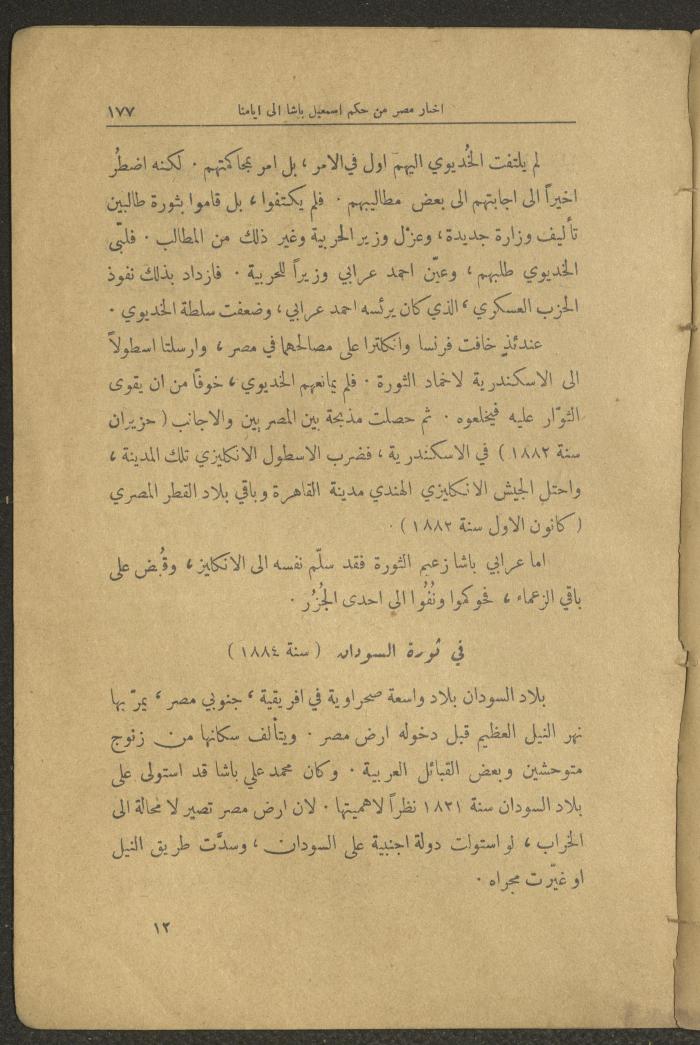 اخبار مصر من حكم اسمعيل باشا الى ايامنا ١٧٧
لم يلتفت الخُديوي اليهم اول في الامر ، بل امر بمحاكمتهم . لكنه اضطُر
اخيراً الى اجابتهم الى بعض مطاليبهم . فلم يكتفوا ، بل قاموا بثورة طالبين
تأليف وزارة جديدة ، وعزْل وزير الحربية وغير ذلك من المطالب . فلبّى
الخديوي طلبهم ، وعيّن احمد عرابي وزيراً للحربية . فازداد بذلك نفوذ
الحزب العسكري ، الذي كان يرئسه احمد عرابي ، وضعفت سلطة الخديوي .
عندئذٍ خافت فرنسا وانكلترا على مصالحهما في مصر ، وارسلتا اسطولاً
الى الاسكندرية لاخماد الثورة . فلم يمانعهم الخديوي ، خوفًا من ان يقوى
الثوّار عليه فيخلعوه . ثم حصلت مذبحة بين المصريين والاجانب ( حزيران
سنة ١٨٨٢ ) في الاسكندرية ، فضرب الاسطول الانكليزي تلك المدينة ،
واحتل الجيش الانكليزي الهندي مدينة القاهرة وباقي بلاد القطر المصري
( كانون الاول سنة ١٨٨٢ ) .
اما عرابي باشا زعيم الثورة فقد سلّم نفسه الى الانكليز ، وقُبض على
باقي الزعماء ، فحوكموا ونُفُوا الى احدى الجُزُر .
في ثورة السودان ( سنة ١٨٨٤ )
بلاد السودان بلاد واسعة صحراوية في افريقية ، جنوبي مصر ، يمرّ بها
نهر النيل العظيم قبل دخوله ارض مصر . ويتألف سكانها من زنوج
متوحشين وبعض القبائل العربية . وكان محمد علي باشا قد استولى على
بلاد السودان سنة ١٨٢١ نظراً لاهميتها . لان ارض مصر تصير لا محالة الى
الخراب ، لو استولت دولة اجنبية على السودان ، وسدَّت طريق النيل
او غيّرت مجراه .
١٢